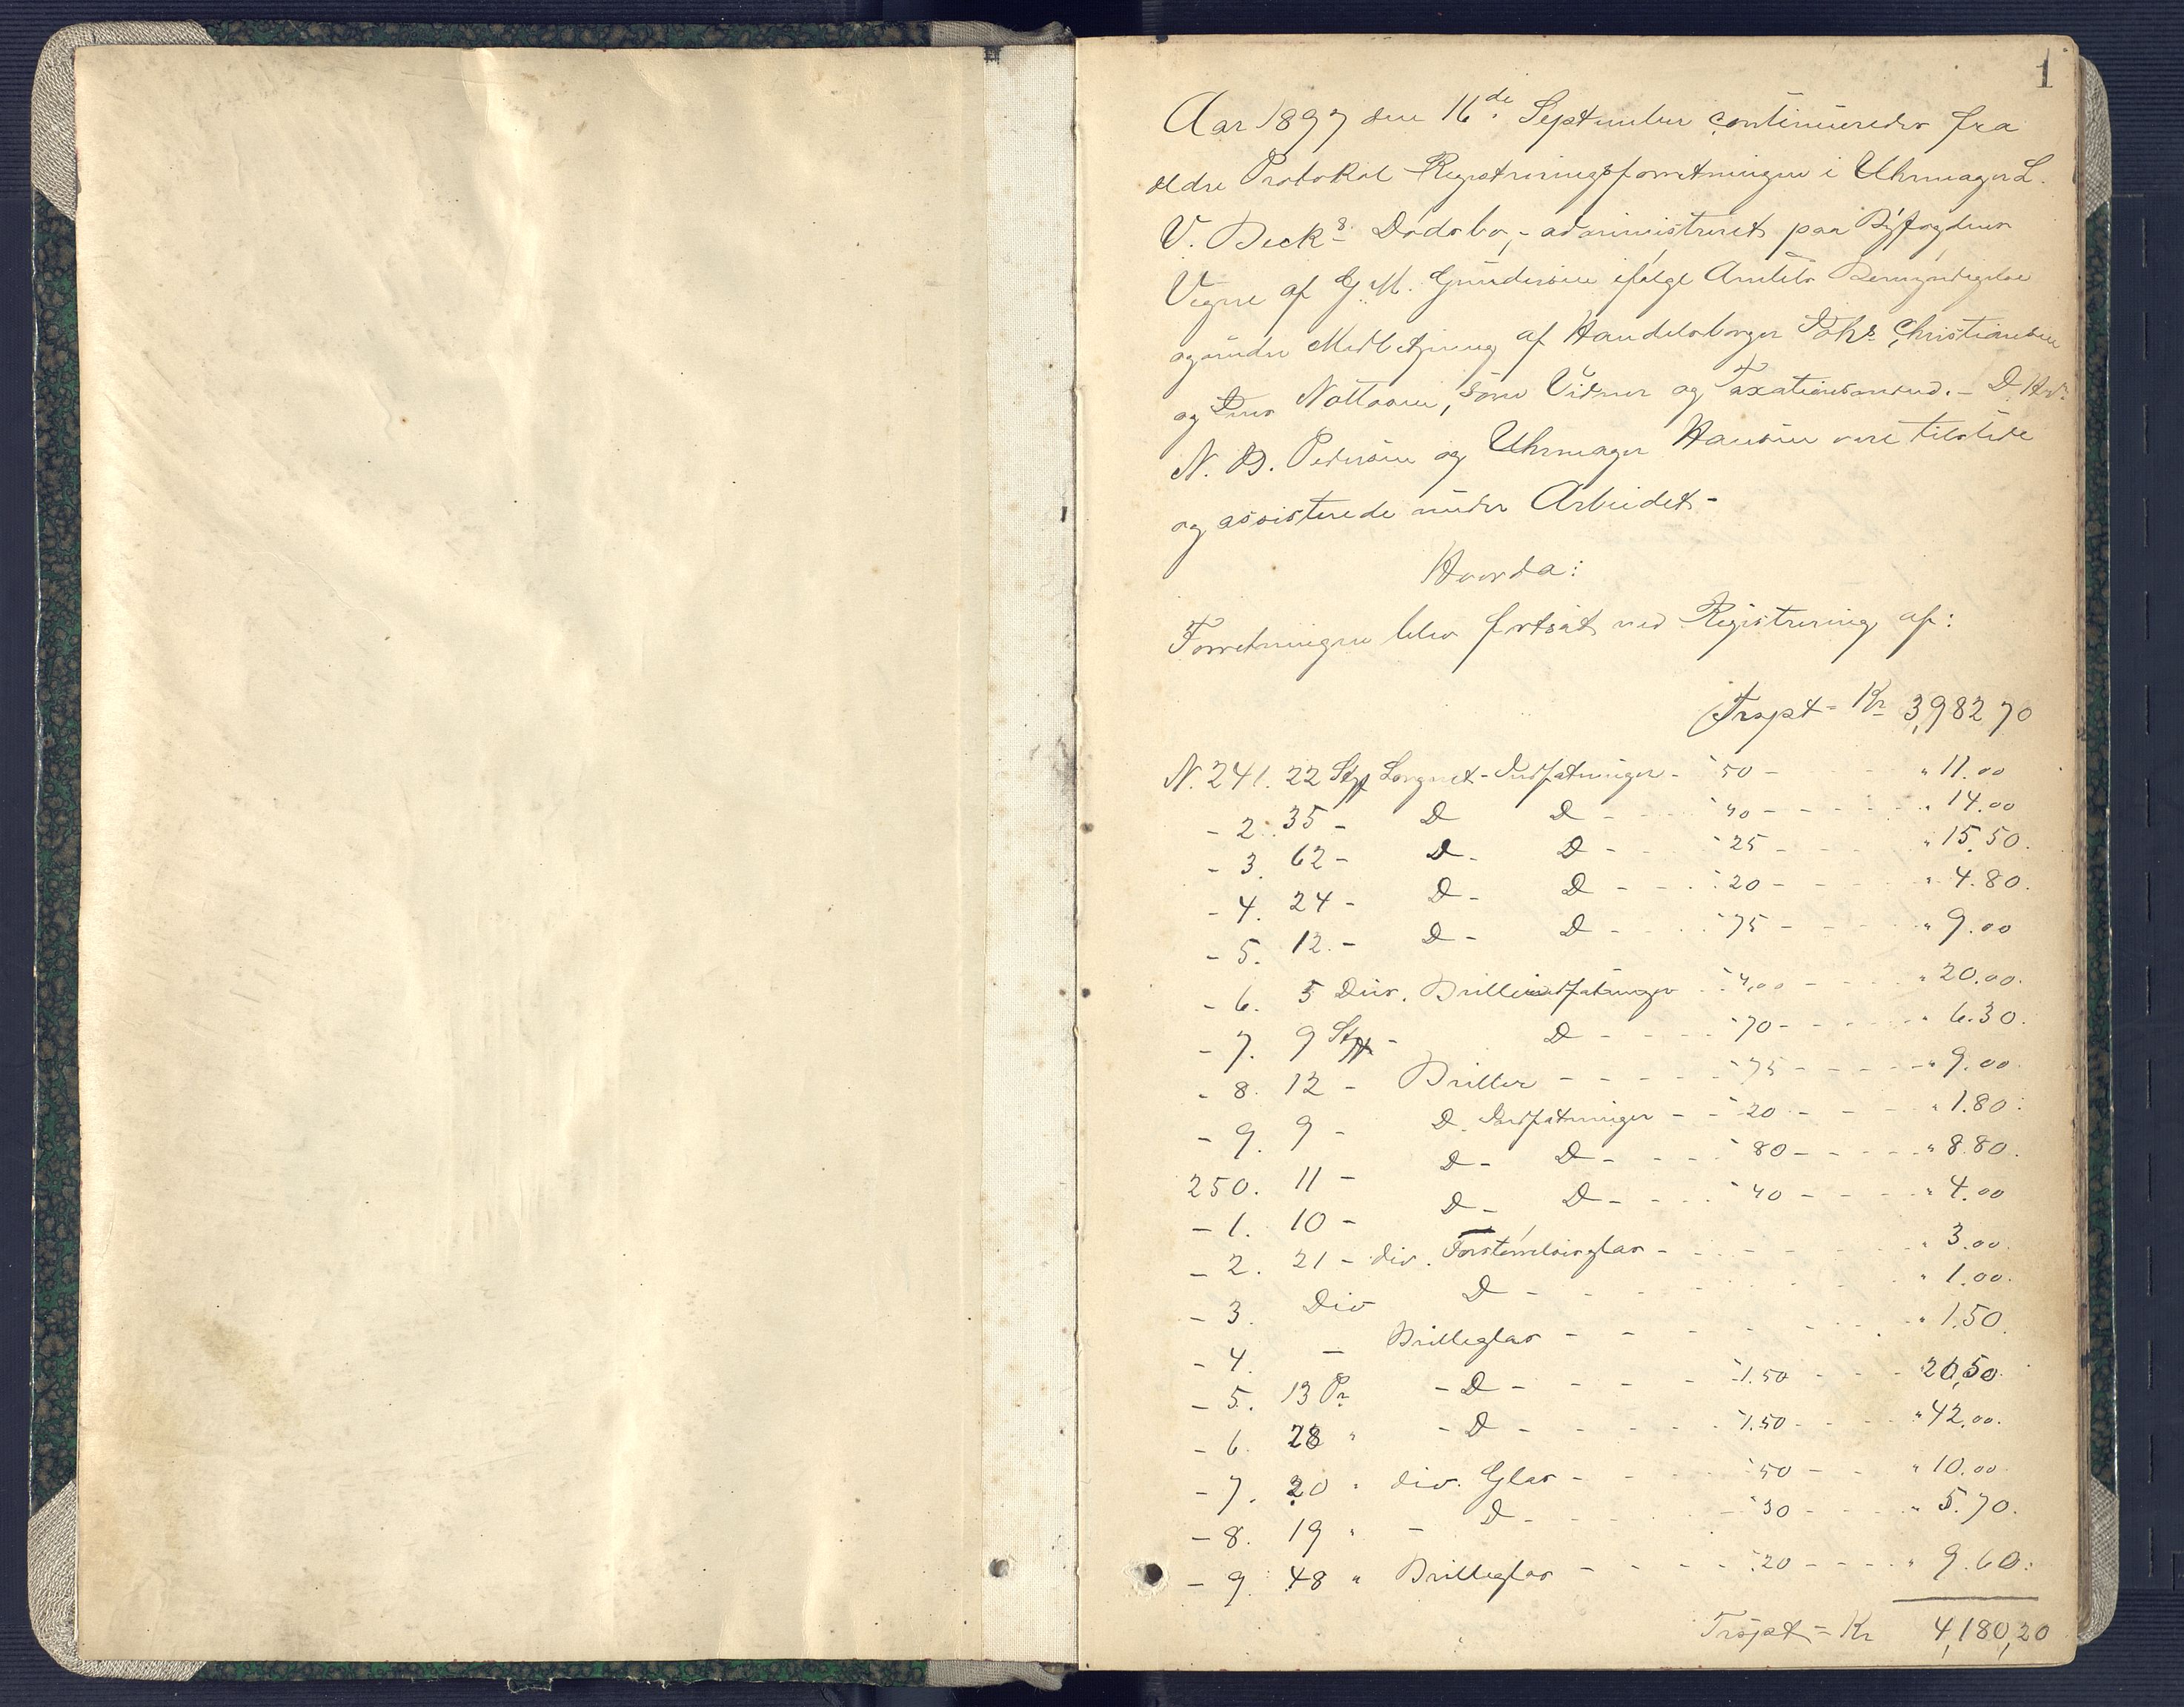 1
Aar 1897 den 16de September continueredes fra
ældre Protokol Registreringsforretningen i Uhrmager L.
V. Becks Dødsbo, - administreret paa Byfogdens
Vegne af G. M. Gundersen ifølge Amtets Bemyndigelse
og under Medbetjening af Handelsborger Johs Christiansen
og Jens Nottosen, som Vidner og Taxationsmænd. - D. Hrr
N. B. Pedersen og Uhrmager Hansen vare tilstede
og assisterede under Arbeidet -
Hvorda:
Forretningen blev fortsat ved Registrering af:
Trspt - Kr 3,982 70
N. 241. 22 Stkr Lorgnet-Indfatninger - 50 - " 11.00
- 2. 35 - D D - - 40 - - - - " 14.00
- 3. 62 - D - D - - 25 - - - " 15.50.
- 4. 24 - D - D - - - 20 - - - " 4.80.
- 5. 12. - D - D - - 75 - - - " 9.00
- 6. 5 Dus. Brilleindfatninger - 4,00 - - - " 20.00.
- 7. 9 Stkr - D - - - 70 - - - - " 6.30.
- 8. 12 - Briller - - - - 75 - - - - " 9.00.
- 9. 9 - D. Indfatninger - - 20 - - - " 1.80.
250. 11 - D - D - - - 80 - - - - " 8.80.
- 1. 10 - D - D - - - 40 - - - - " 4.00
- 2. 21 - div. Forstørrelsesglas - - - - - " 3.00.
- 3. Div D - - - - - " 1.00.
- 4. - Brilleglas - - - - - - - " 1.50.
- 5. 13 Pr - D - - - - - 1.50 - - - " 20,50.
- 6. 28 " - D - - - - - 1.50 - - - " 42.00.
- 7. 20 " div. Glas - - - 50 - - " 10.00
- 8. 19 " - D - - - - 30 - - - - " 5.70.
- 9. 48 " Brilleglas - - - - 20 - - - - " 9.60.
Trspt - Kr 4,180,20